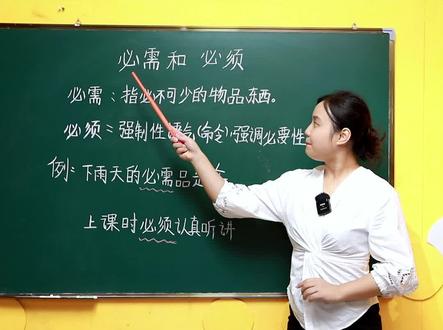 必需和 必须
必需：指必不可少的物品东西。
必须：强制性语气(命令)·强调必要性
例：下雨天的必需品是
上课时必须认真听讲